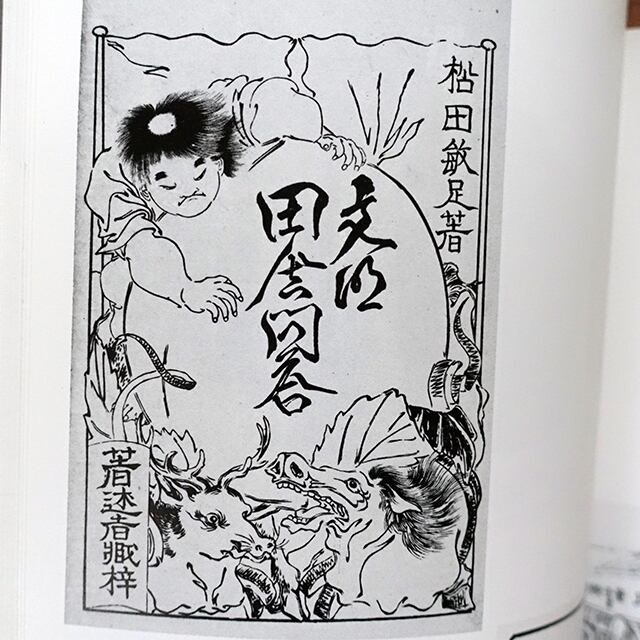 柗田敏足著
文明
田舎問答
著述者藏梓